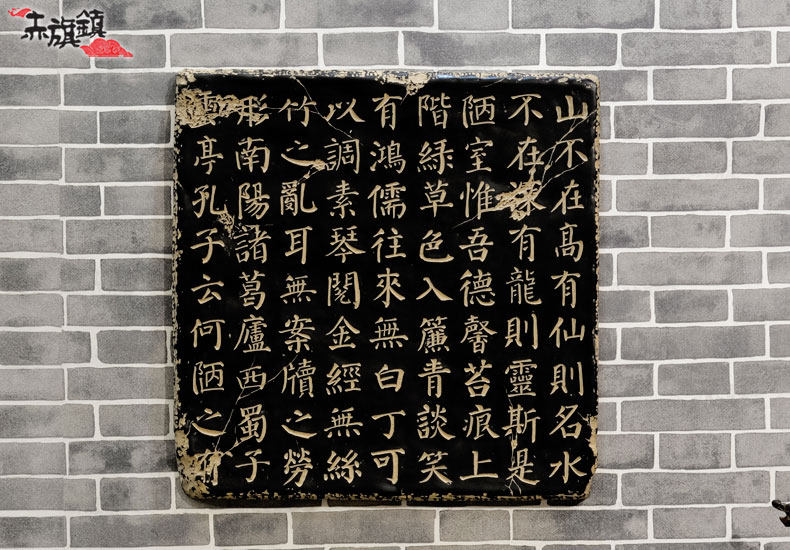 赤旗鎮
山不在高有仙則名水
不在深有龍則靈斯是
陋室惟吾德馨苔痕上
階綠草色入簾青談笑
有鴻儒往來無白丁可
以調素琴閱金經無絲
竹之亂耳無案牘之勞
形南陽諸葛廬西蜀子
雲亭孔子云何陋之有